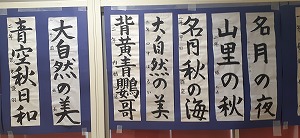 名月の夜
山里の秋
名月秋の海
大自然の美
背黄青鸚哥
大自然の美
青空秋日和